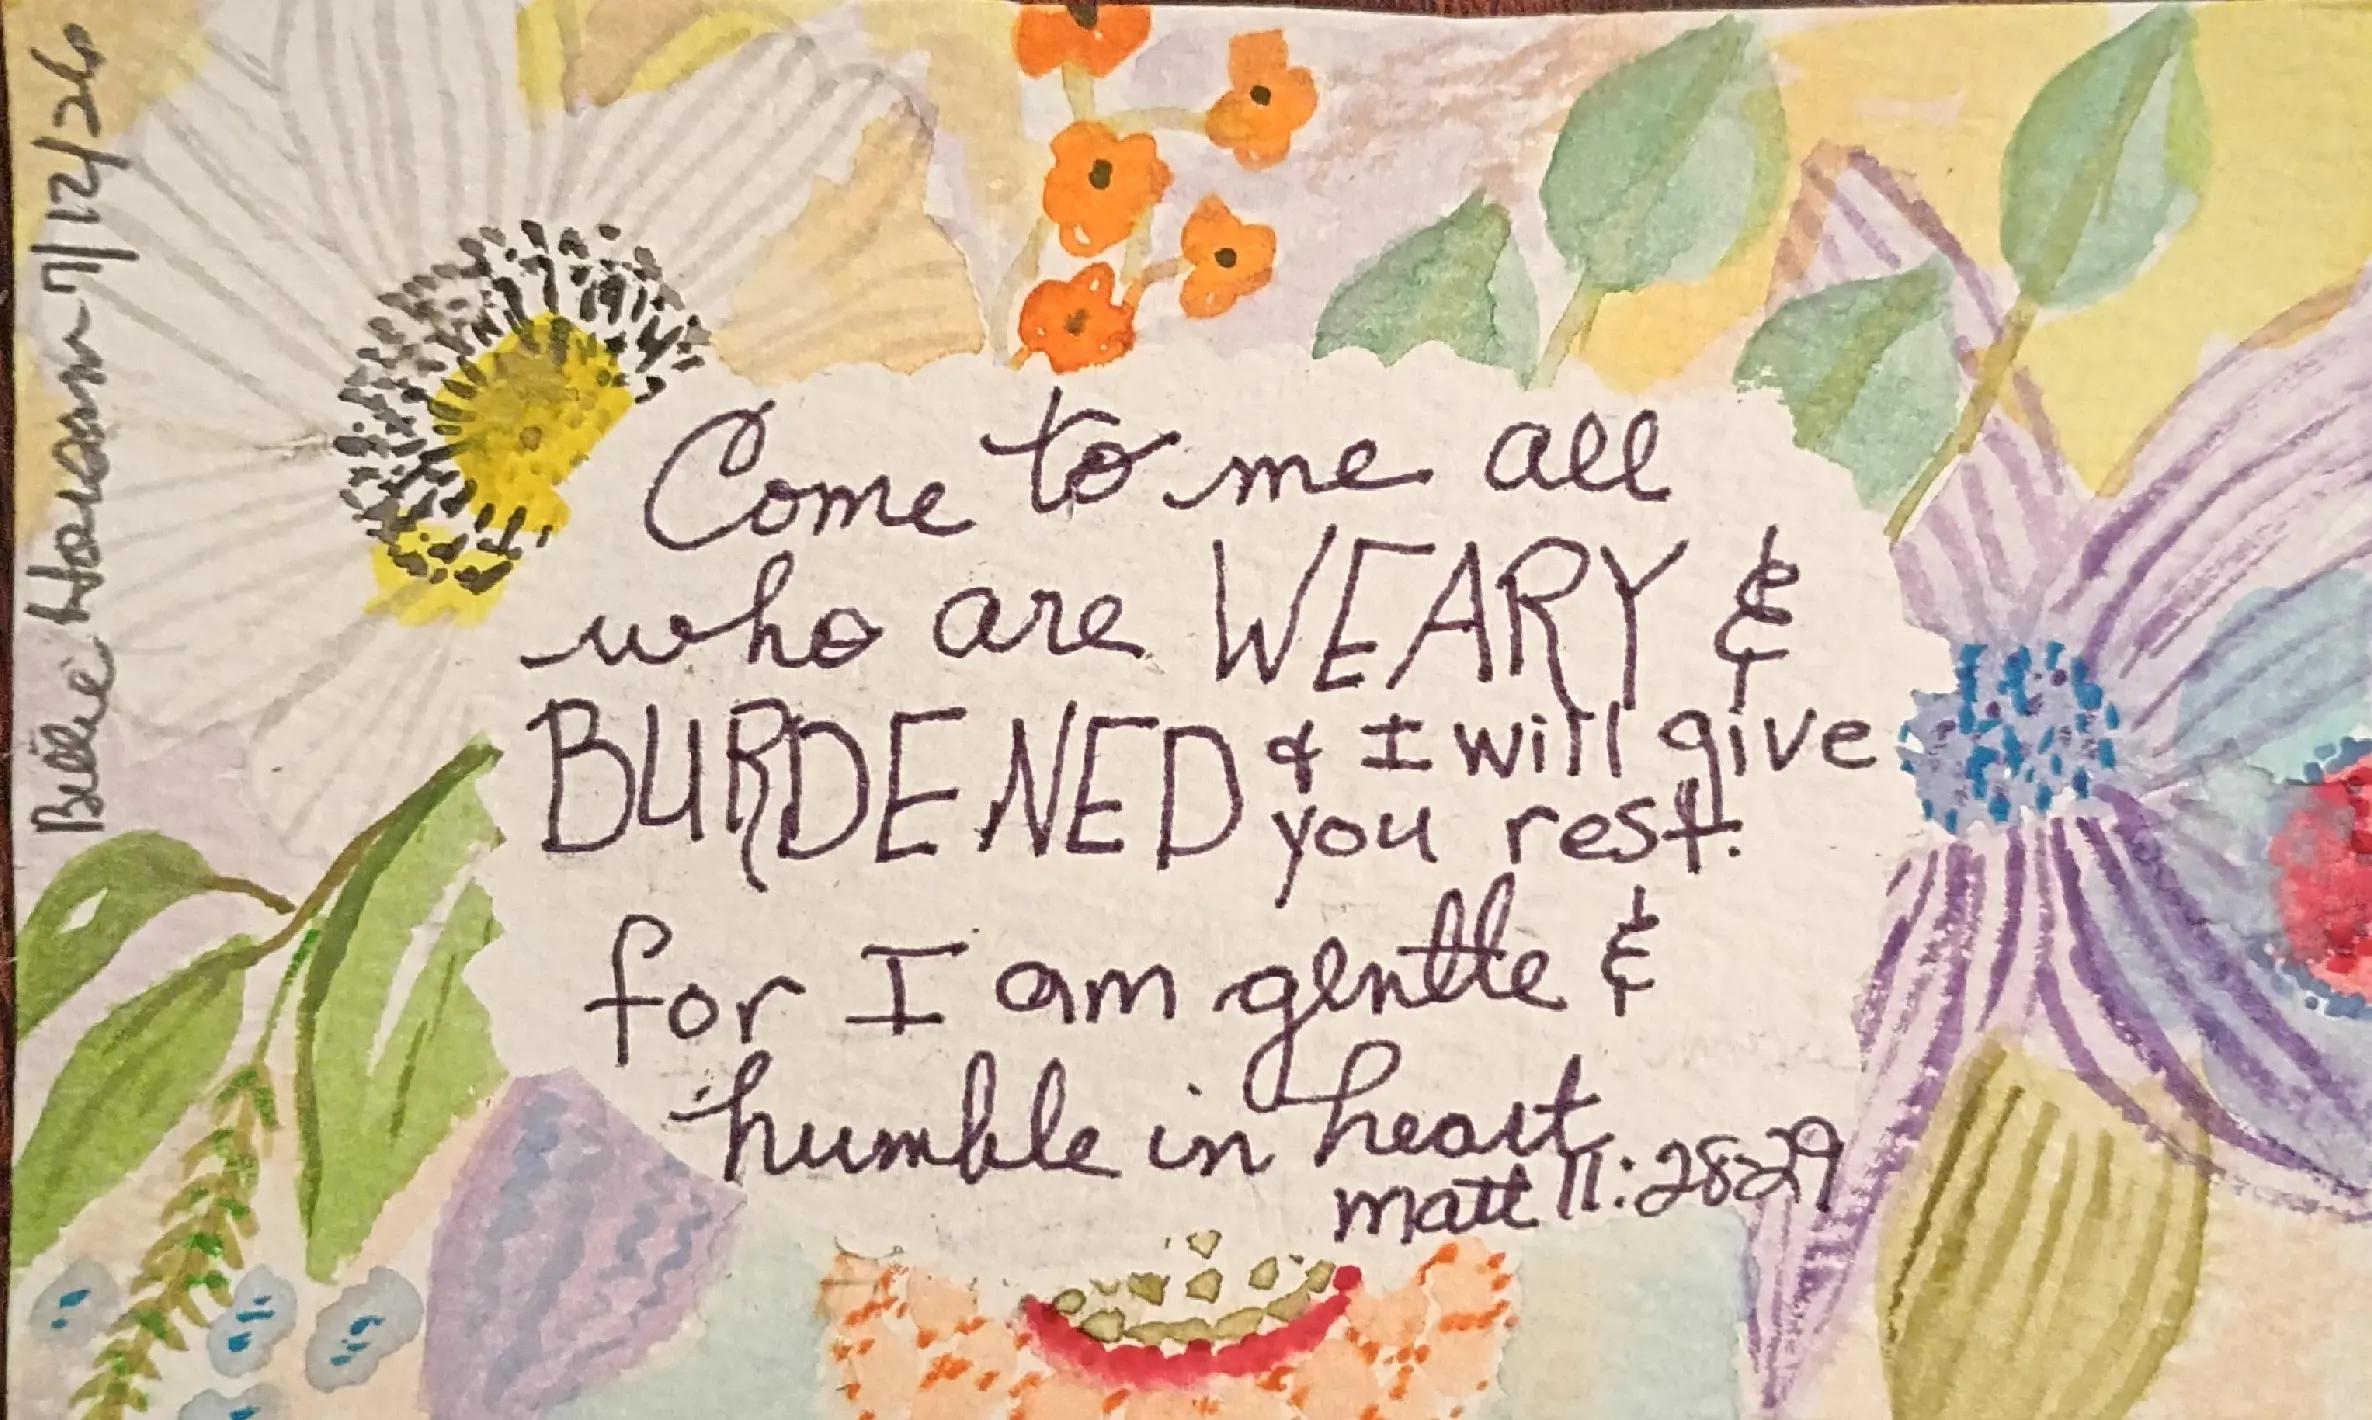 Come to me all
who are WEARY &
BURDENED & I will give
you rest.
for I am gentle &
humble in heart
matt 11:28-29
Billie 7/12/26